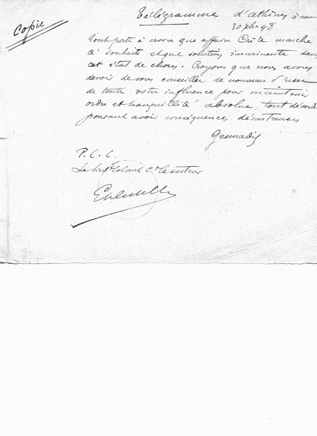 Copie
Télégramme d'Athènes
30
Tout porte à croire que affaire Crète marche
à souhaits et que solution imminente dans
cet état de choses. Croyons que nous avons
devoir de vous conseiller de nouveau d'user
de toute votre influence pour maintenir
ordre et tranquillité absolue, tout désordre
pouvant avoir conséquences désastreuses
Gennadis
P.C.C.
Le Lieutᵗ Colonel Cᵗ le secteur